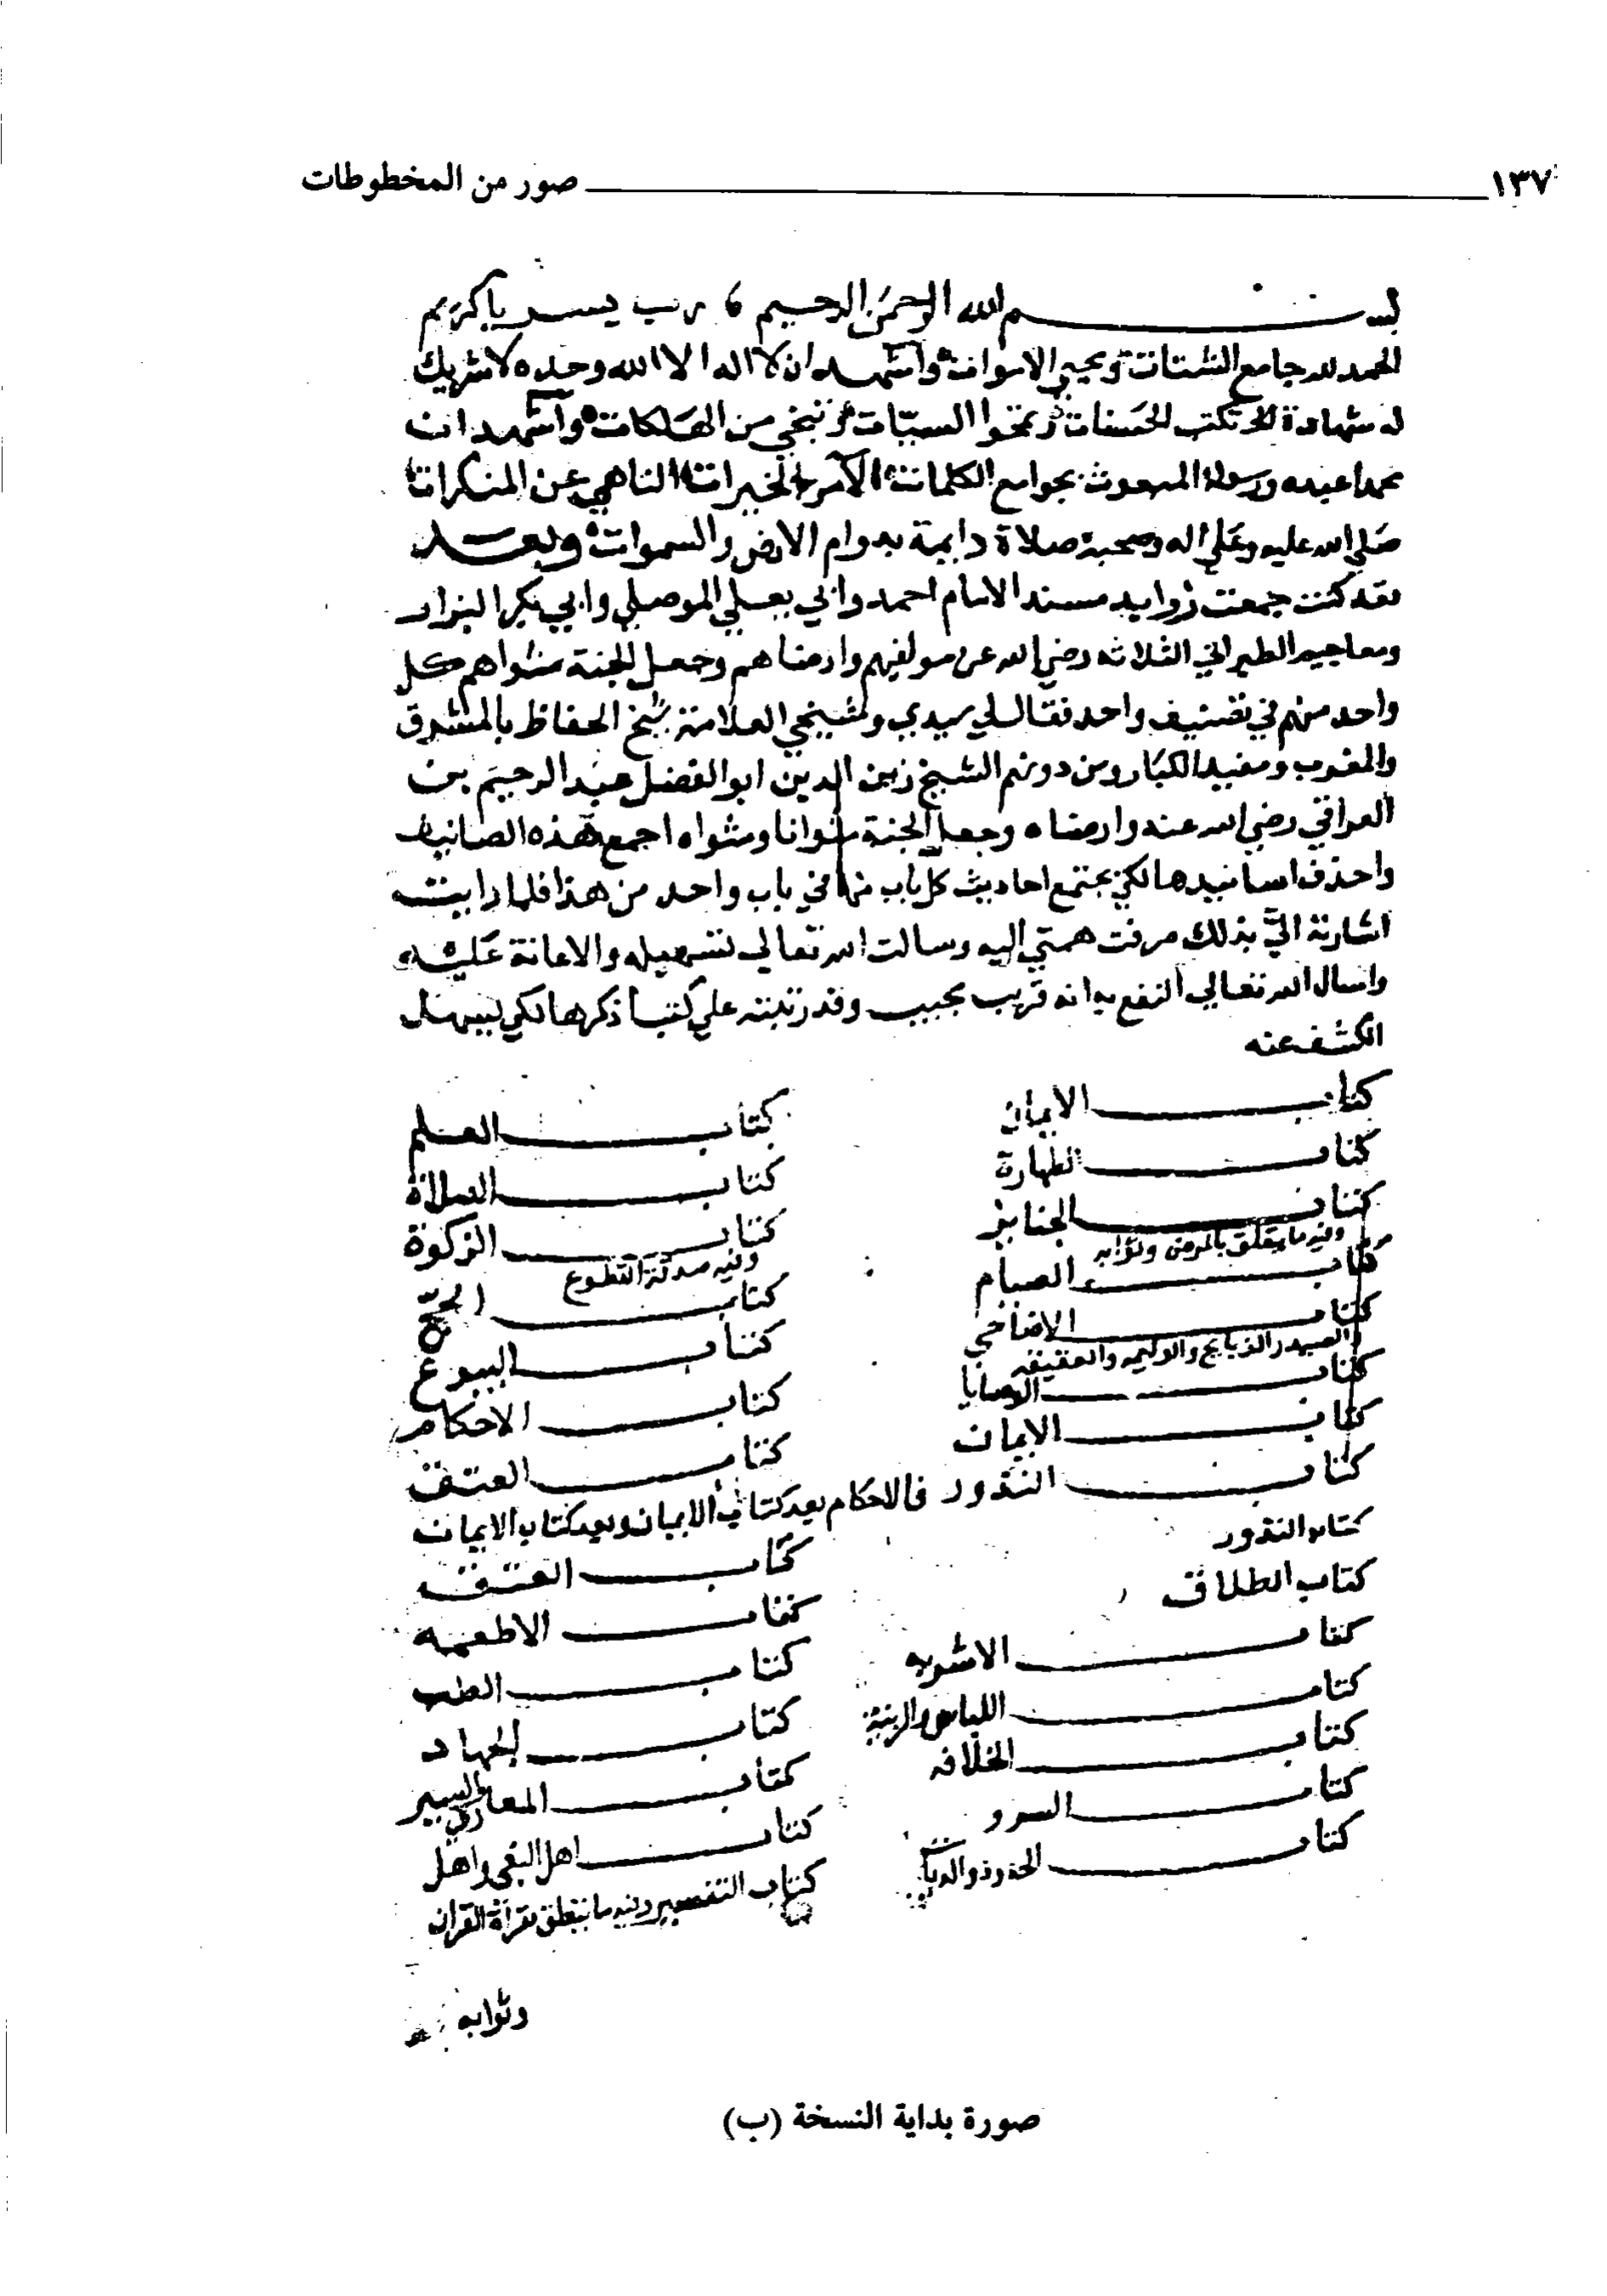 صور من المخطوطات ١٣٧
بسم الله الرحمن الرحيم رب يسر ياكريم
الحمد لله جامع الشتات ومحيي الاموات واشهد ان لا اله الا الله وحده لا شريك
له شهادة تكتب الحسنات وتمحوا السيئات وتنجي من الهلكات واشهد ان
محمدا عبده ورسوله المبعوث بجوامع الكلمات الآمر بالخيرات الناهي عن المنكرات
صلى الله عليه وعلى اله وصحبه صلاة دايمة بدوام الارض والسموات وبعد
فقد كنت جمعت زوايد مسند الامام احمد وابي يعلي الموصلي وابي بكر البزار
ومعاجيم الطبراني الثلاثه رضي الله عن مولفيهم وارضاهم وجعل الجنة مثواهم كل
واحد منهم في تصنيف واحد فقال لي سيدي وشيخي العلامة شيخ الحفاظ بالمشرق
والمغرب ومفيد الكبار ومن دونهم الشيخ زين الدين ابو الفضل عبد الرحيم بن
العراقي رضي الله عنه وارضاه وجعل الجنة مثوانا ومثواه اجمع هذه الصانيف
واحذف اسانيدها لكي يجتمع احاديث كل باب منها في باب واحد من هذا فلما رايت
اشارته اليّ بذلك صرفت همتي اليه وسالت الله تعالي تسهيله والاعانة عليه
واسال الله تعالي النفع به انه قريب مجيب وقد رتبته علي كتب اذكرها لكي يسهل
الكشف عنه
كتاب الايمان كتاب العلم
كتاب الطهارة كتاب الصلاة
كتاب الجنايز كتاب الزكوة
وفيه ما يتعلق بالمرض وثوابه وفيه صدقة التطوع
كتاب الصيام كتاب الحج
كتاب الاضاحي كتاب البيوع
والصيد والذبايح والوليمه والعقيقه
كتاب الوصايا كتاب الاحكام
كتاب الايمان كتاب العتق
كتاب النذور في الاحكام بعد كتاب الايمان وبعد كتاب الايمان
كتاب النذور كتاب العتق
كتاب الطلاق كتاب الاطعمه
كتاب الاشربه كتاب الطب
كتاب اللباس والزينة كتاب الجهاد
كتاب الخلافه كتاب المغازي والسير
كتاب كتاب اهل البغي واهل
كتاب الحدود والديات كتاب التفسير وفيه ما يتعلق بقرأة القران
وثوابه
صورة بداية النسخة (ب)